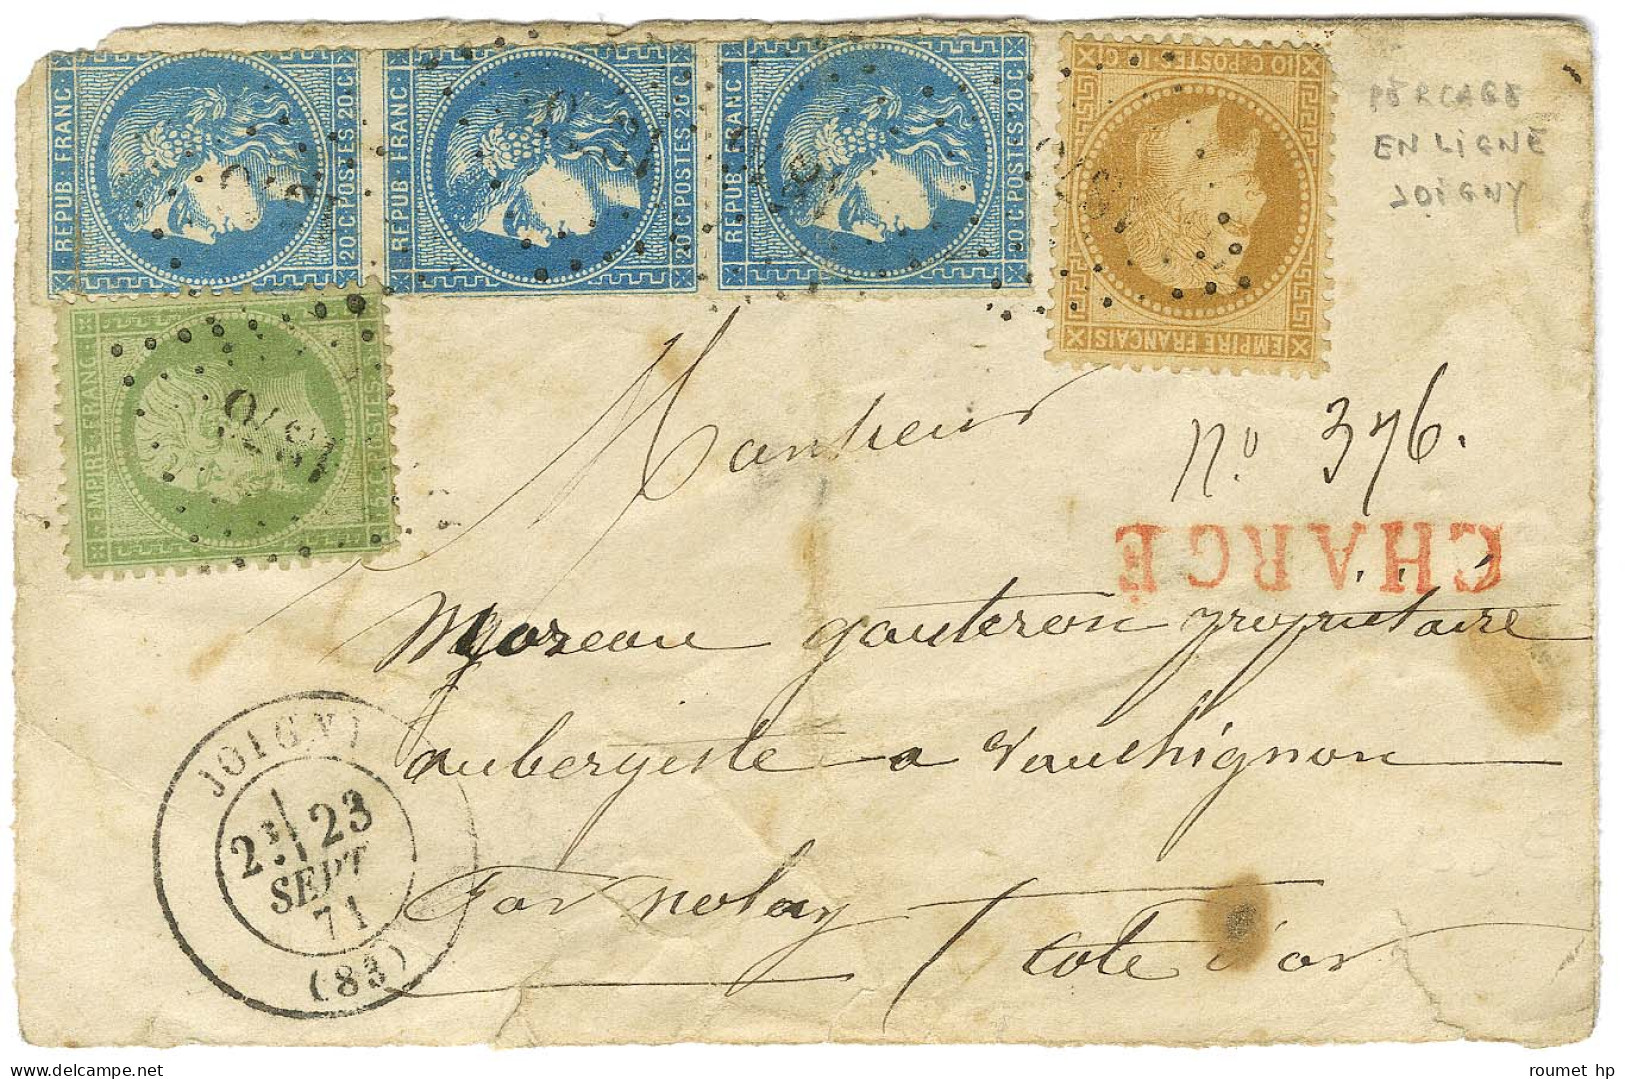 REPUB. FRANC
20 C. POSTES 20 C.
REPUB. FRANC
20 C POSTES 20 C
REPUB. FRANC
20 C POSTES 20 C
10 C. POSTES 10 C.
EMPIRE FRANÇAIS
PERCAGE
EN LIGNE
JOIGNY
EMPIRE FRANC.
5 C. POSTES 5
Monsieur
No 376.
CHARGÉ
Moreau gauteron propriétaire
aubergiste a Vauchignon
Par nolay
Cote d'or
JOIGNY
2E 23
SEPT
71
(83)
roumet hp